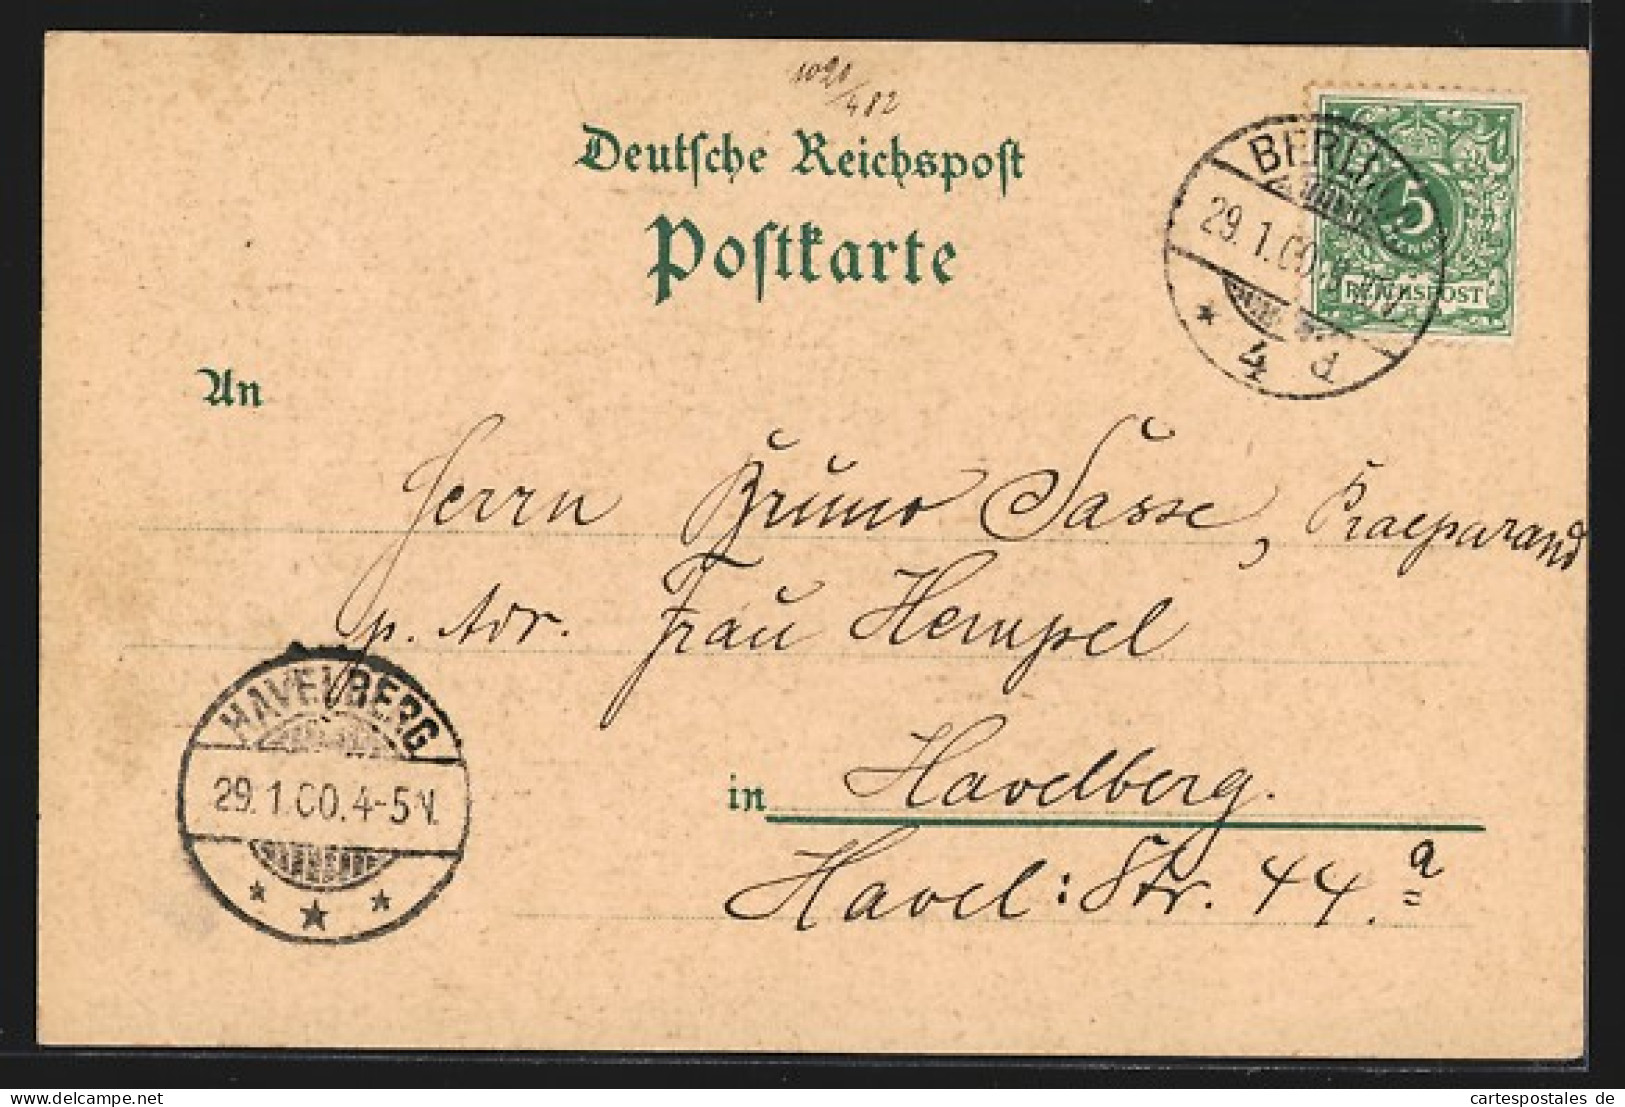 1090/482
Deutsche Reichspost
Postkarte
BERLIN
29.1.00.
4 d
5
REICHSPOST
An
Herrn Bruno Sasse, Praeparand
p. Adr. Frau Hempel
HAVELBERG
29.1.00.4-5N.
in Havelberg.
Havel:Str. 44.a
cartespostales de